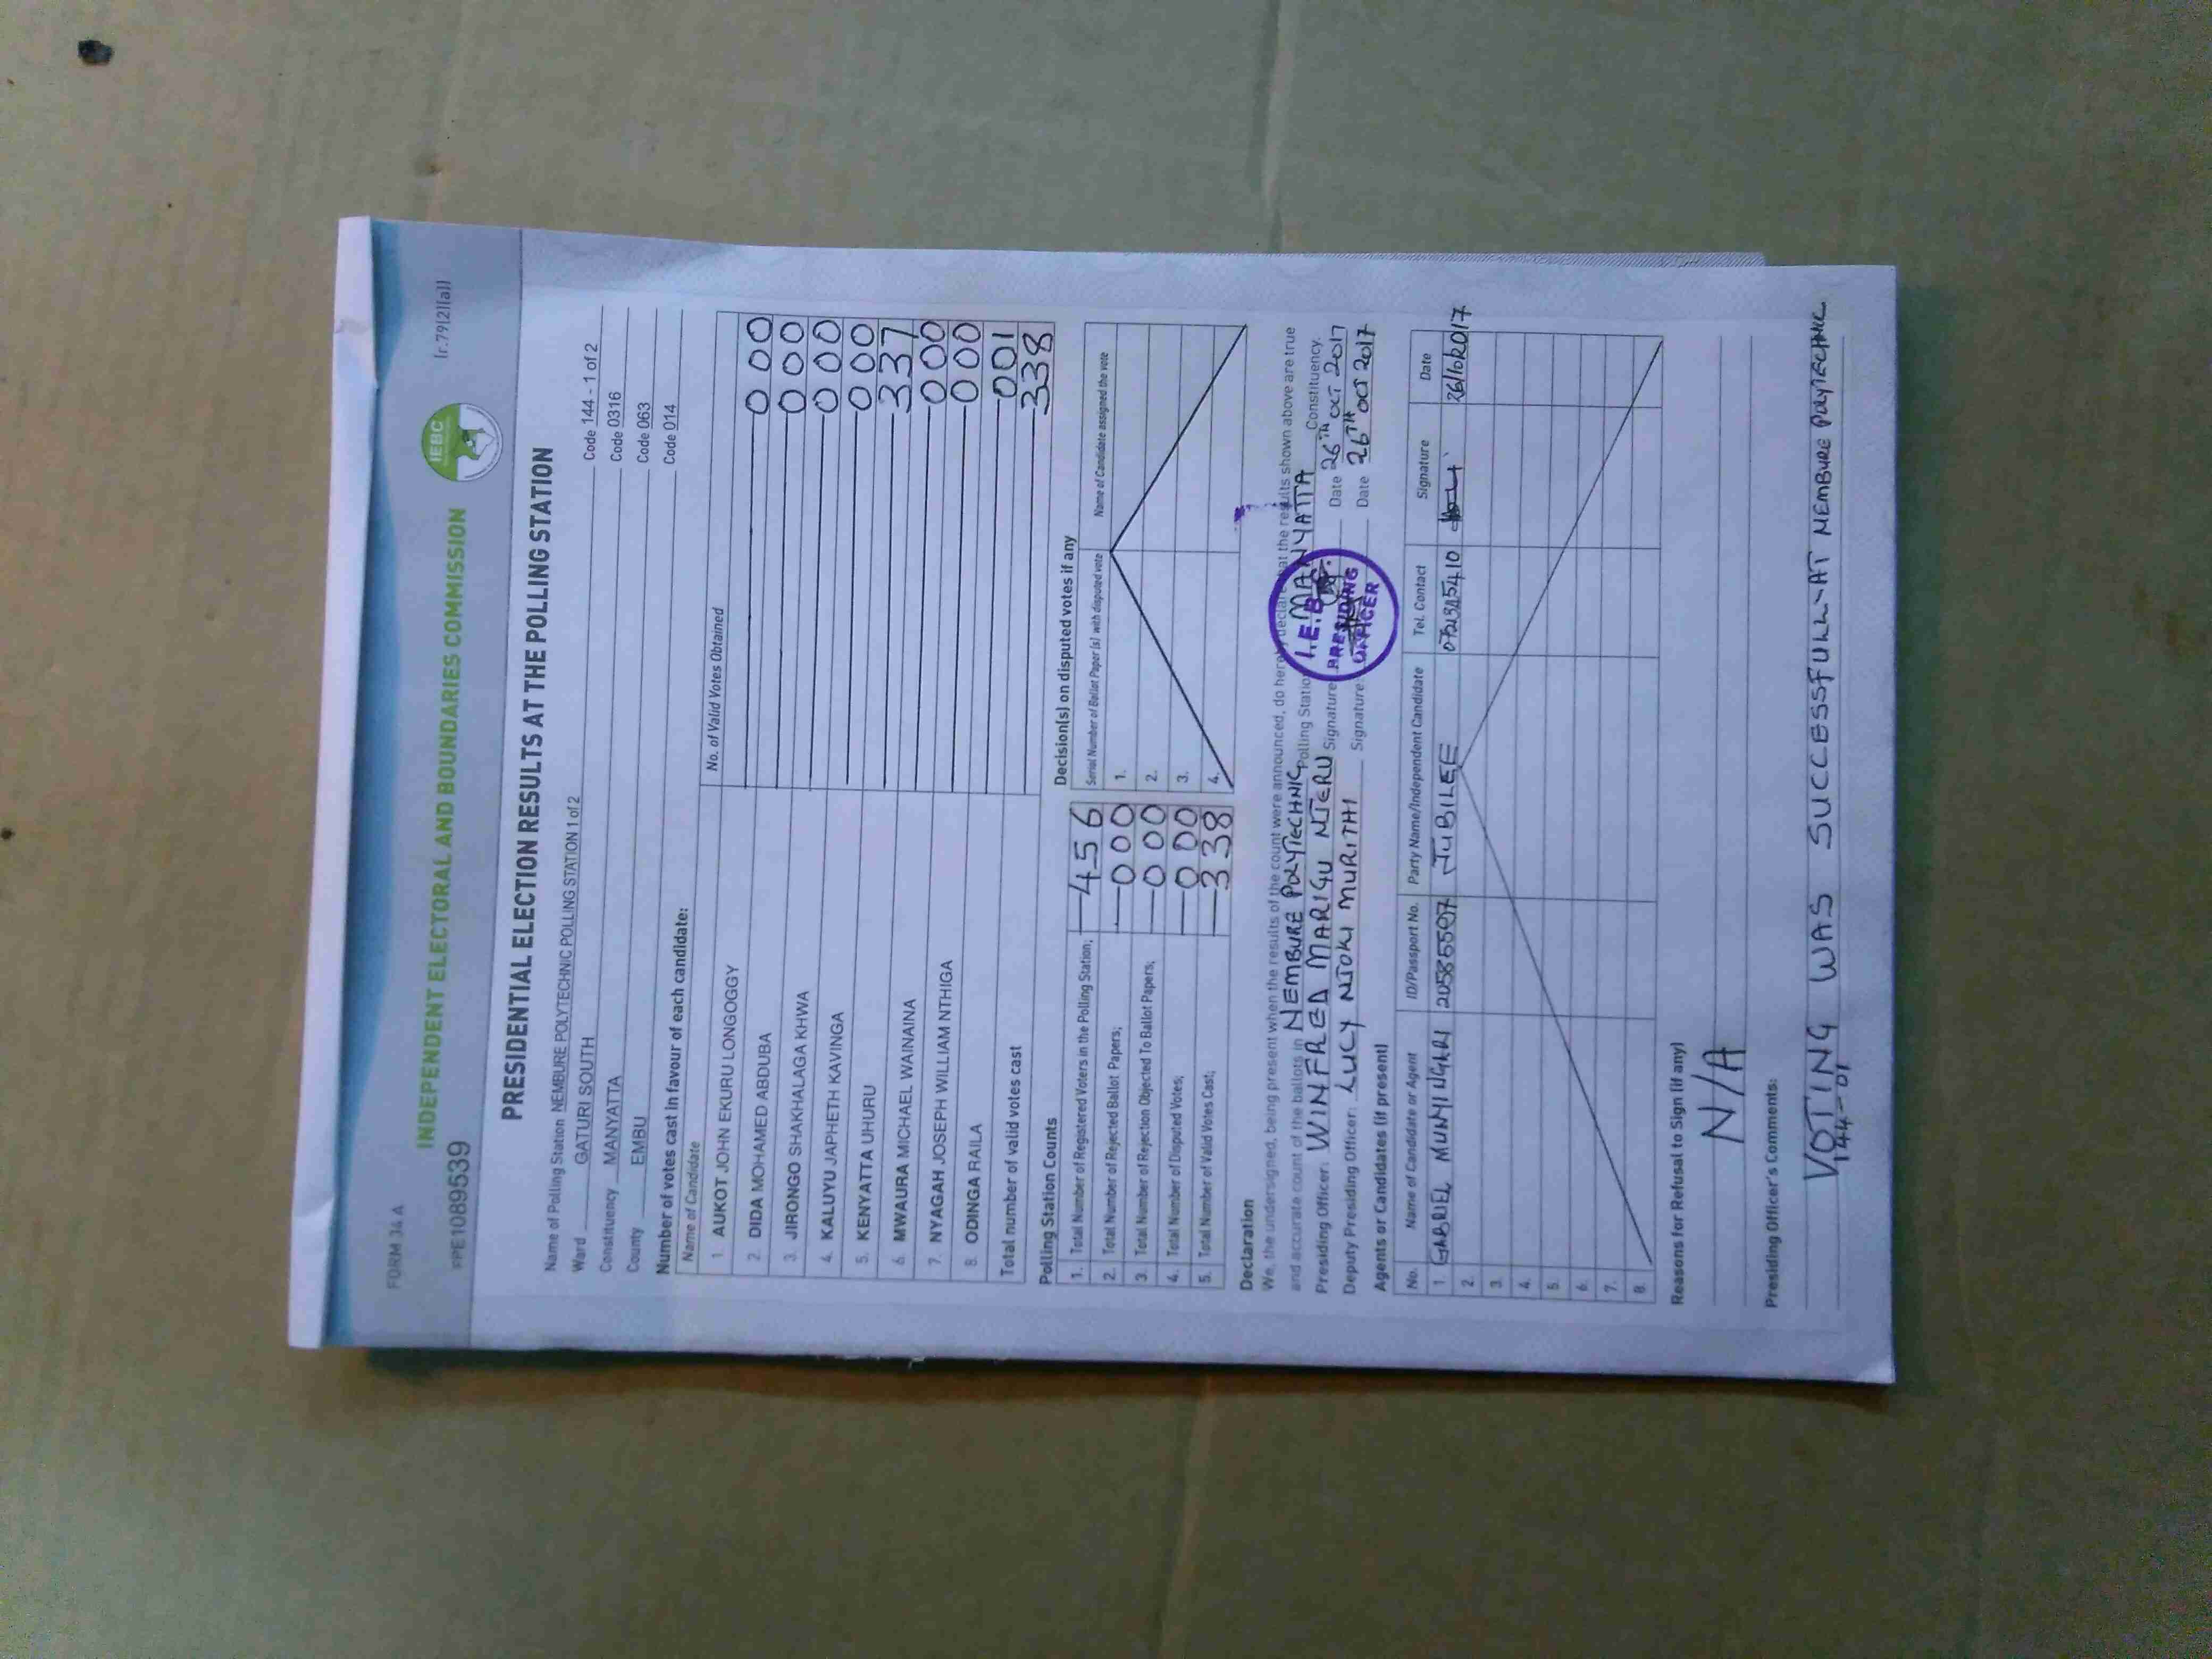 FORM 34 A
(r.79(2)(a))
INDEPENDENT ELECTORAL AND BOUNDARIES COMMISSION
IEBC
PPE1089539
PRESIDENTIAL ELECTION RESULTS AT THE POLLING STATION
Name of Polling Station NEMBURE POLYTECHNIC POLLING STATION 1 of 2 Code 144 - 1 of 2
Ward GATURI SOUTH Code 0316
Constituency MANYATTA Code 063
County EMBU Code 014
Number of votes cast in favour of each candidate:
Name of Candidate No. of Valid Votes Obtained
1. AUKOT JOHN EKURU LONGOGGY 000
2. DIDA MOHAMED ABDUBA 000
3. JIRONGO SHAKHALAGA KHWA 000
4. KALUYU JAPHETH KAVINGA 000
5. KENYATTA UHURU 337
6. MWAURA MICHAEL WAINAINA 000
7. NYAGAH JOSEPH WILLIAM NTHIGA 000
8. ODINGA RAILA 001
Total number of valid votes cast 338
Polling Station Counts
1. Total Number of Registered Voters in the Polling Station; 456
2. Total Number of Rejected Ballot Papers; 000
3. Total Number of Rejection Objected To Ballot Papers; 000
4. Total Number of Disputed Votes; 000
5. Total Number of Valid Votes Cast; 338
Decision(s) on disputed votes if any
Serial Number of Ballot Paper (s) with disputed vote Name of Candidate assigned the vote
1.
2.
3.
4.
Declaration
We, the undersigned, being present when the results of the count were announced, do hereby declare that the results shown above are true
and accurate count of the ballots in NEMBURE POLYTECHNIC Polling Station MANYATTA Constituency.
Presiding Officer: WINFRED MARIGU NJERU Signature Date 26TH OCT 2017
Deputy Presiding Officer: LUCY NJOKI MURITHI Signature: Date 26TH OCT 2017
I.E.B.C.
PRESIDING
OFFICER
Agents or Candidates (if present)
No. Name of Candidate or Agent ID/Passport No. Party Name/Independent Candidate Tel. Contact Signature Date
1. GABRIEL JUBILEE 26/10/2017
2.
3.
4.
5.
6.
7.
8.
Reasons for Refusal to Sign (if any)
N/A
Presiding Officer's Comments:
VOTING WAS SUCCESSFULLY AT NEMBURE POLYTECHNIC
144-01